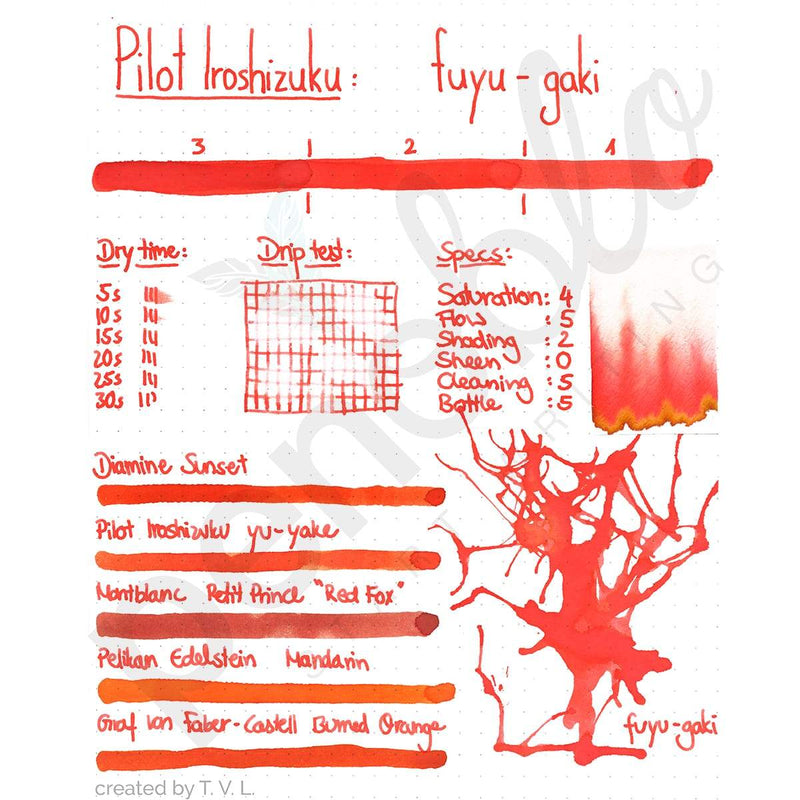 Pilot Iroshizuku: fuyu-gaki
3 2 1
Dry time:
5s
10s
15s
20s
25s
30s
Drip test:
Specs:
Saturation: 4
Flow : 5
Shading : 2
Sheen : 0
Cleaning : 5
Bottle : 5
Diamine Sunset
Pilot Iroshizuku yu-yake
Montblanc Petit Prince "Red Fox"
Pelikan Edelstein Mandarin
Graf von Faber-Castell Burned Orange
fuyu-gaki
created by T. V. L.
penoblo